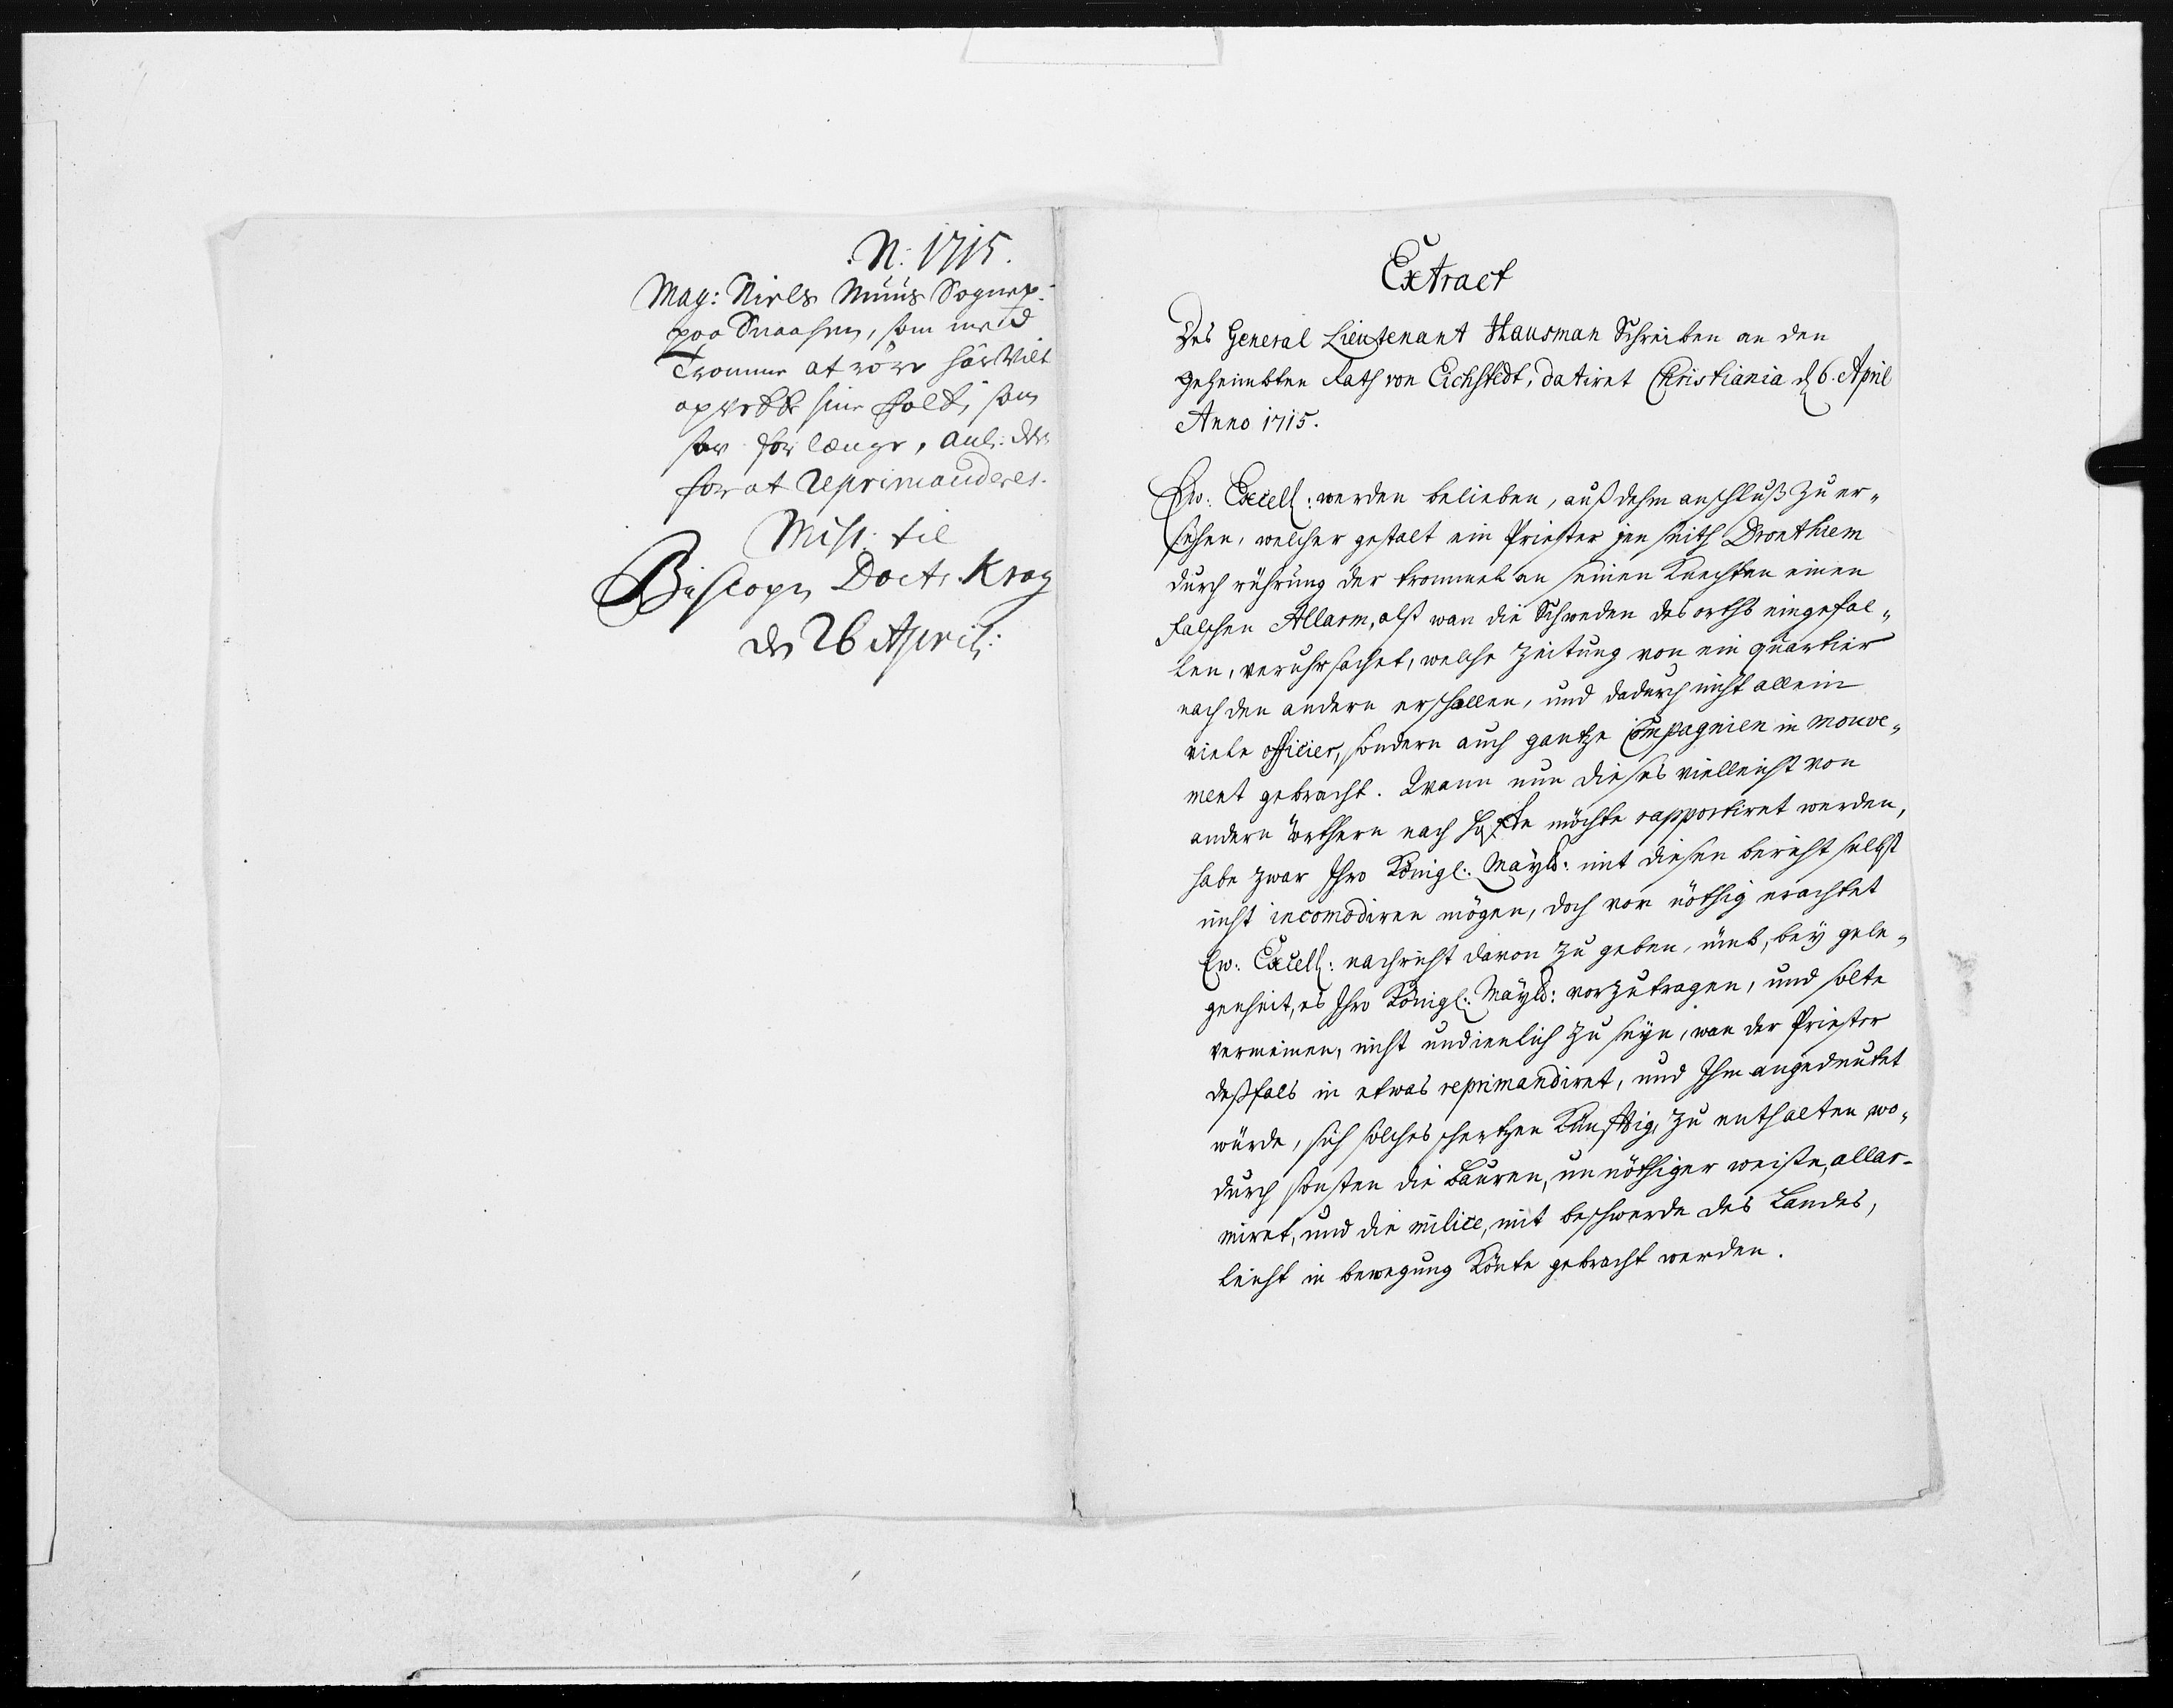 N: 1715.
Mag: Niels Muus Sognep:
paa Snaasen, som med
Tromme at röre har Vilt
opvekke sine Folk, som
for længe, anl: der
for at reprimanderes.
Miss: til
Biscopen Doct. Krog
den 26 April:
Extract
Des General Lieutenant Hausman Schreiben an den
geheimbten Rath von Eichstedt, datiret Christiania d 6. April
Anno 1715.
Ew: Excell: werden belieben, auß dehm anschluß zu er-
sehen, welcher gestalt ein Priester jen seith Dronthiem
durch rührung der trommel an seinen Knechten einen
falschen Allarm, alß wan die Schweden des orths eingefal-
len, veruhrsachet, welche Zeitung von ein quartier
nach den andern erschallen, und dadurch nicht allein
viele officier, sondern auch gantze Compagnien in mouve-
ment gebracht. Wann nun dieses vielleicht von
andern örthern nach hoffe möchte rapportiret werden,
habe zwar Ihro Königl: Mayts: mit diesen bericht selbst
nicht incomodiren mögen, doch vor nöthig erachtet
Ew: Excell: nachricht davon zu geben, umb, bey gele-
genheit, es Ihro Königl: Mayts: vorzutragen, und solte
vermeinen, nicht undienlich zu seyn, wan der Priester
deßfals in etwas reprimandiret, und Ihm angedeutet
würde, sich solches schertzen künfftig, zu enthalten wo-
durch sonsten die Bauren, unnöthiger weiße, allar-
miret, und die milice, mit beschwerde des Landes,
leicht in bewegung könte gebracht werden.